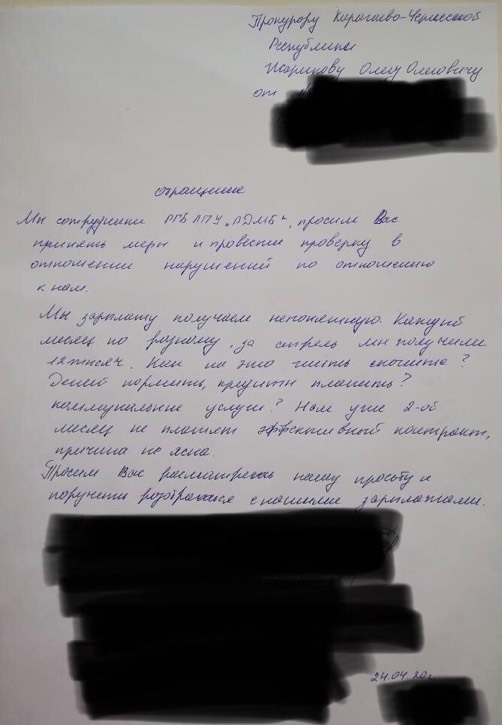 Прокурору Карачаево-Черкесской
Республики
Жарикову Олегу Олеговичу
от
обращение
Мы сотрудники РГБ ЛПУ „РДМБ“, просим Вас
принять меры и провести проверку в
отношении нарушений по отношению
к нам.
Мы зарплату получаем непонятную. Каждый
месяц по разному, за апрель мы получили
12 тысяч. Как на это жить скажите?
Детей кормить, кредиты платить?
коммунальные услуги? Нам уже 2-ой
месяц не платят эффективный контракт,
причина не ясна.
Просим Вас рассмотреть нашу просьбу и
поручить разобраться с нашими зарплатами.
24.04.20г